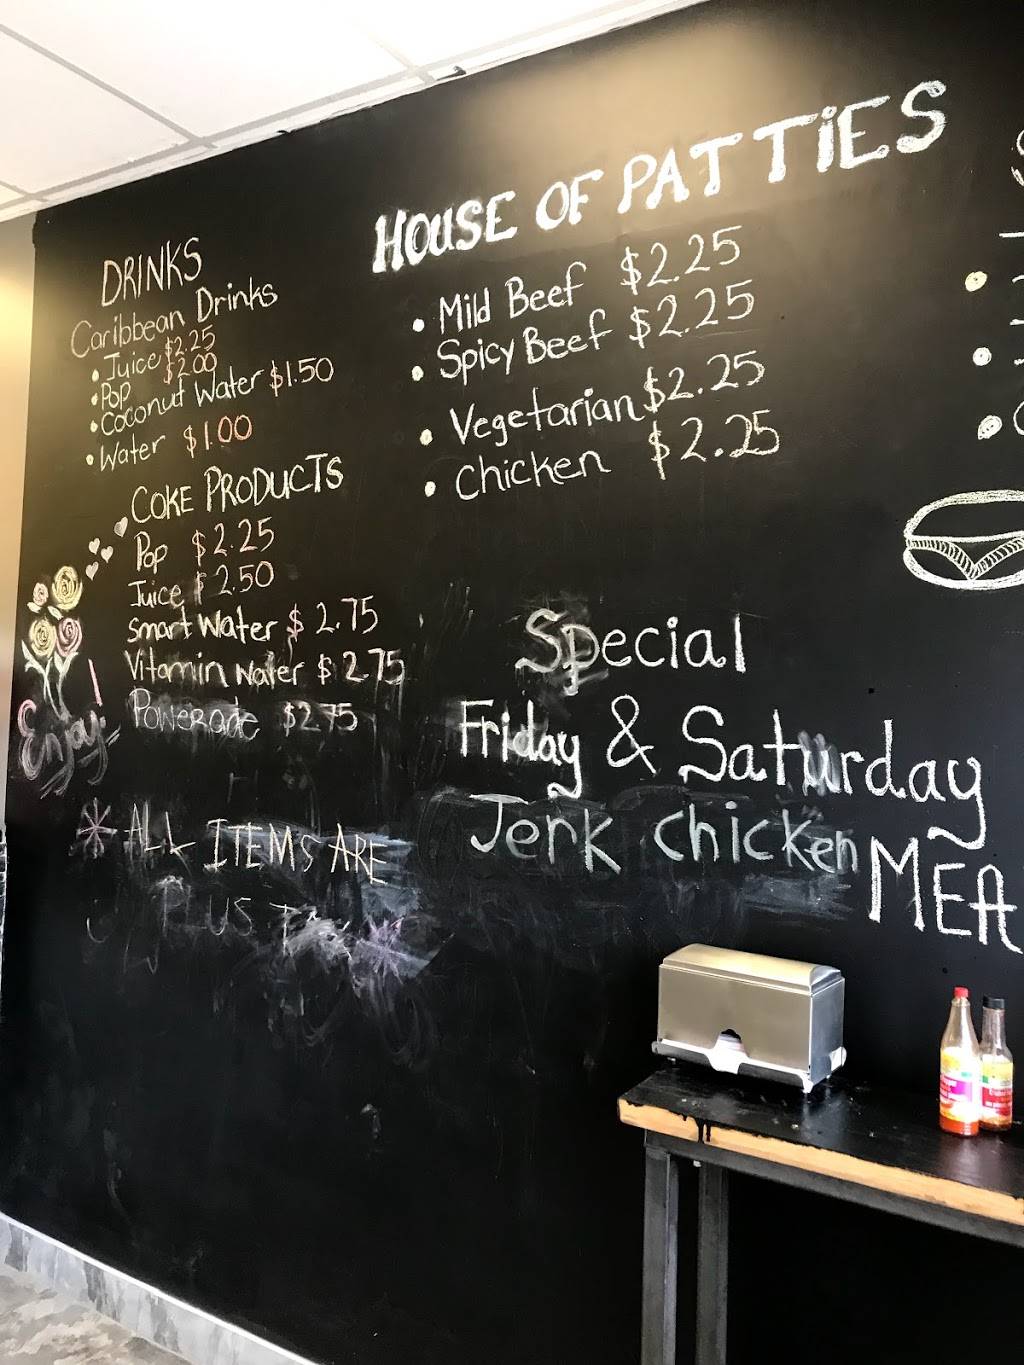 DRINKS
Caribbean Drinks
• Juice $2.25
• Pop $2.00
• Coconut Water $1.50
• Water $1.00
COKE PRODUCTS
Pop $2.25
Juice $2.50
Smart Water $2.75
Vitamin Water $2.75
Powerade $2.75
Enjoy!
* ALL ITEMS ARE
PLUS
HOUSE OF PATTIES
• Mild Beef $2.25
• Spicy Beef $2.25
• Vegetarian $2.25
• Chicken $2.25
Special
Friday & Saturday
Jerk Chicken MEA